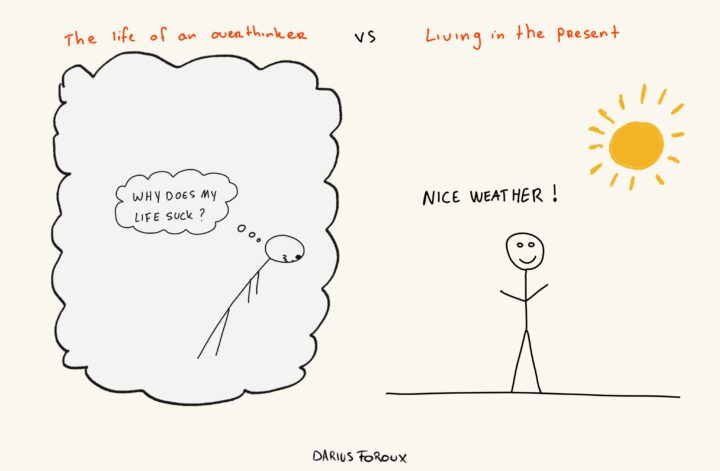 The life of an overthinker vs Living in the present
WHY DOES MY
LIFE SUCK?
NICE WEATHER!
DARIUS FOROUX